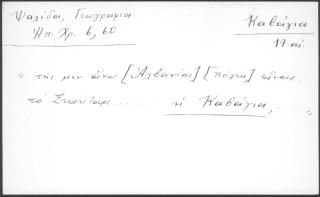 Ψαλίδα, Γεωγραφία
Ηπ. Χρ. 6, 60
Καβάγια
19 αι.
"της μεν άνω [Αλβανίας] [πόλεις] είναι
το Σκουταρι........ η Καβάγια, ......."